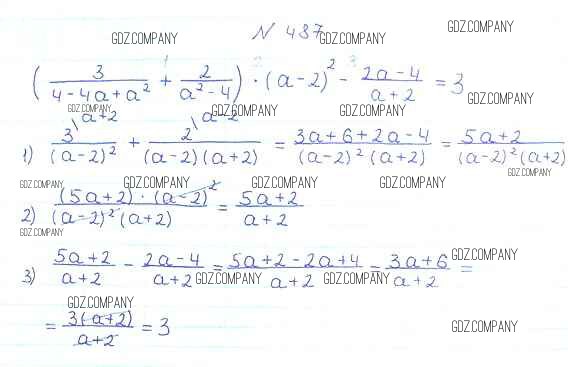 N 487
GDZ.COMPANY GDZ.COMPANY GDZ.COMPANY
1 2 3
( 3/(4-4a+a²) + 2/(a²-4) ) · (a-2)² - (2a-4)/(a+2) = 3
GDZ.COMPANY GDZ.COMPANY GDZ.COMPANY GDZ.COMPANY
1) 3\a+2/(a-2)² + 2\a-2/((a-2)(a+2)) = (3a+6+2a-4)/((a-2)²(a+2)) = (5a+2)/((a-2)²(a+2))
GDZ.COMPANY GDZ.COMPANY GDZ.COMPANY GDZ.COMPANY GDZ.COMPANY
2) ((5a+2)·(a-2)²)/((a-2)²(a+2)) = (5a+2)/(a+2)
GDZ.COMPANY
3) (5a+2)/(a+2) - (2a-4)/(a+2) = (5a+2-2a+4)/(a+2) = (3a+6)/(a+2) =
GDZ.COMPANY GDZ.COMPANY GDZ.COMPANY
GDZ.COMPANY
= 3(a+2)/(a+2) = 3
GDZ.COMPANY